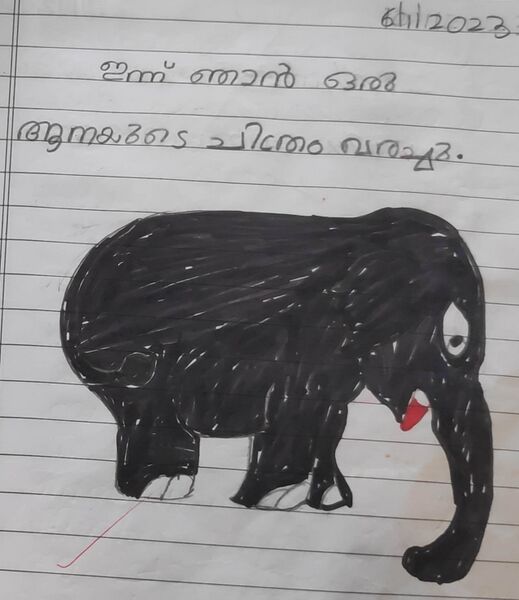 6/1/2023
ഇന്ന് ഞാൻ ഒരു
ആനയുടെ ചിത്രം വരച്ചു.